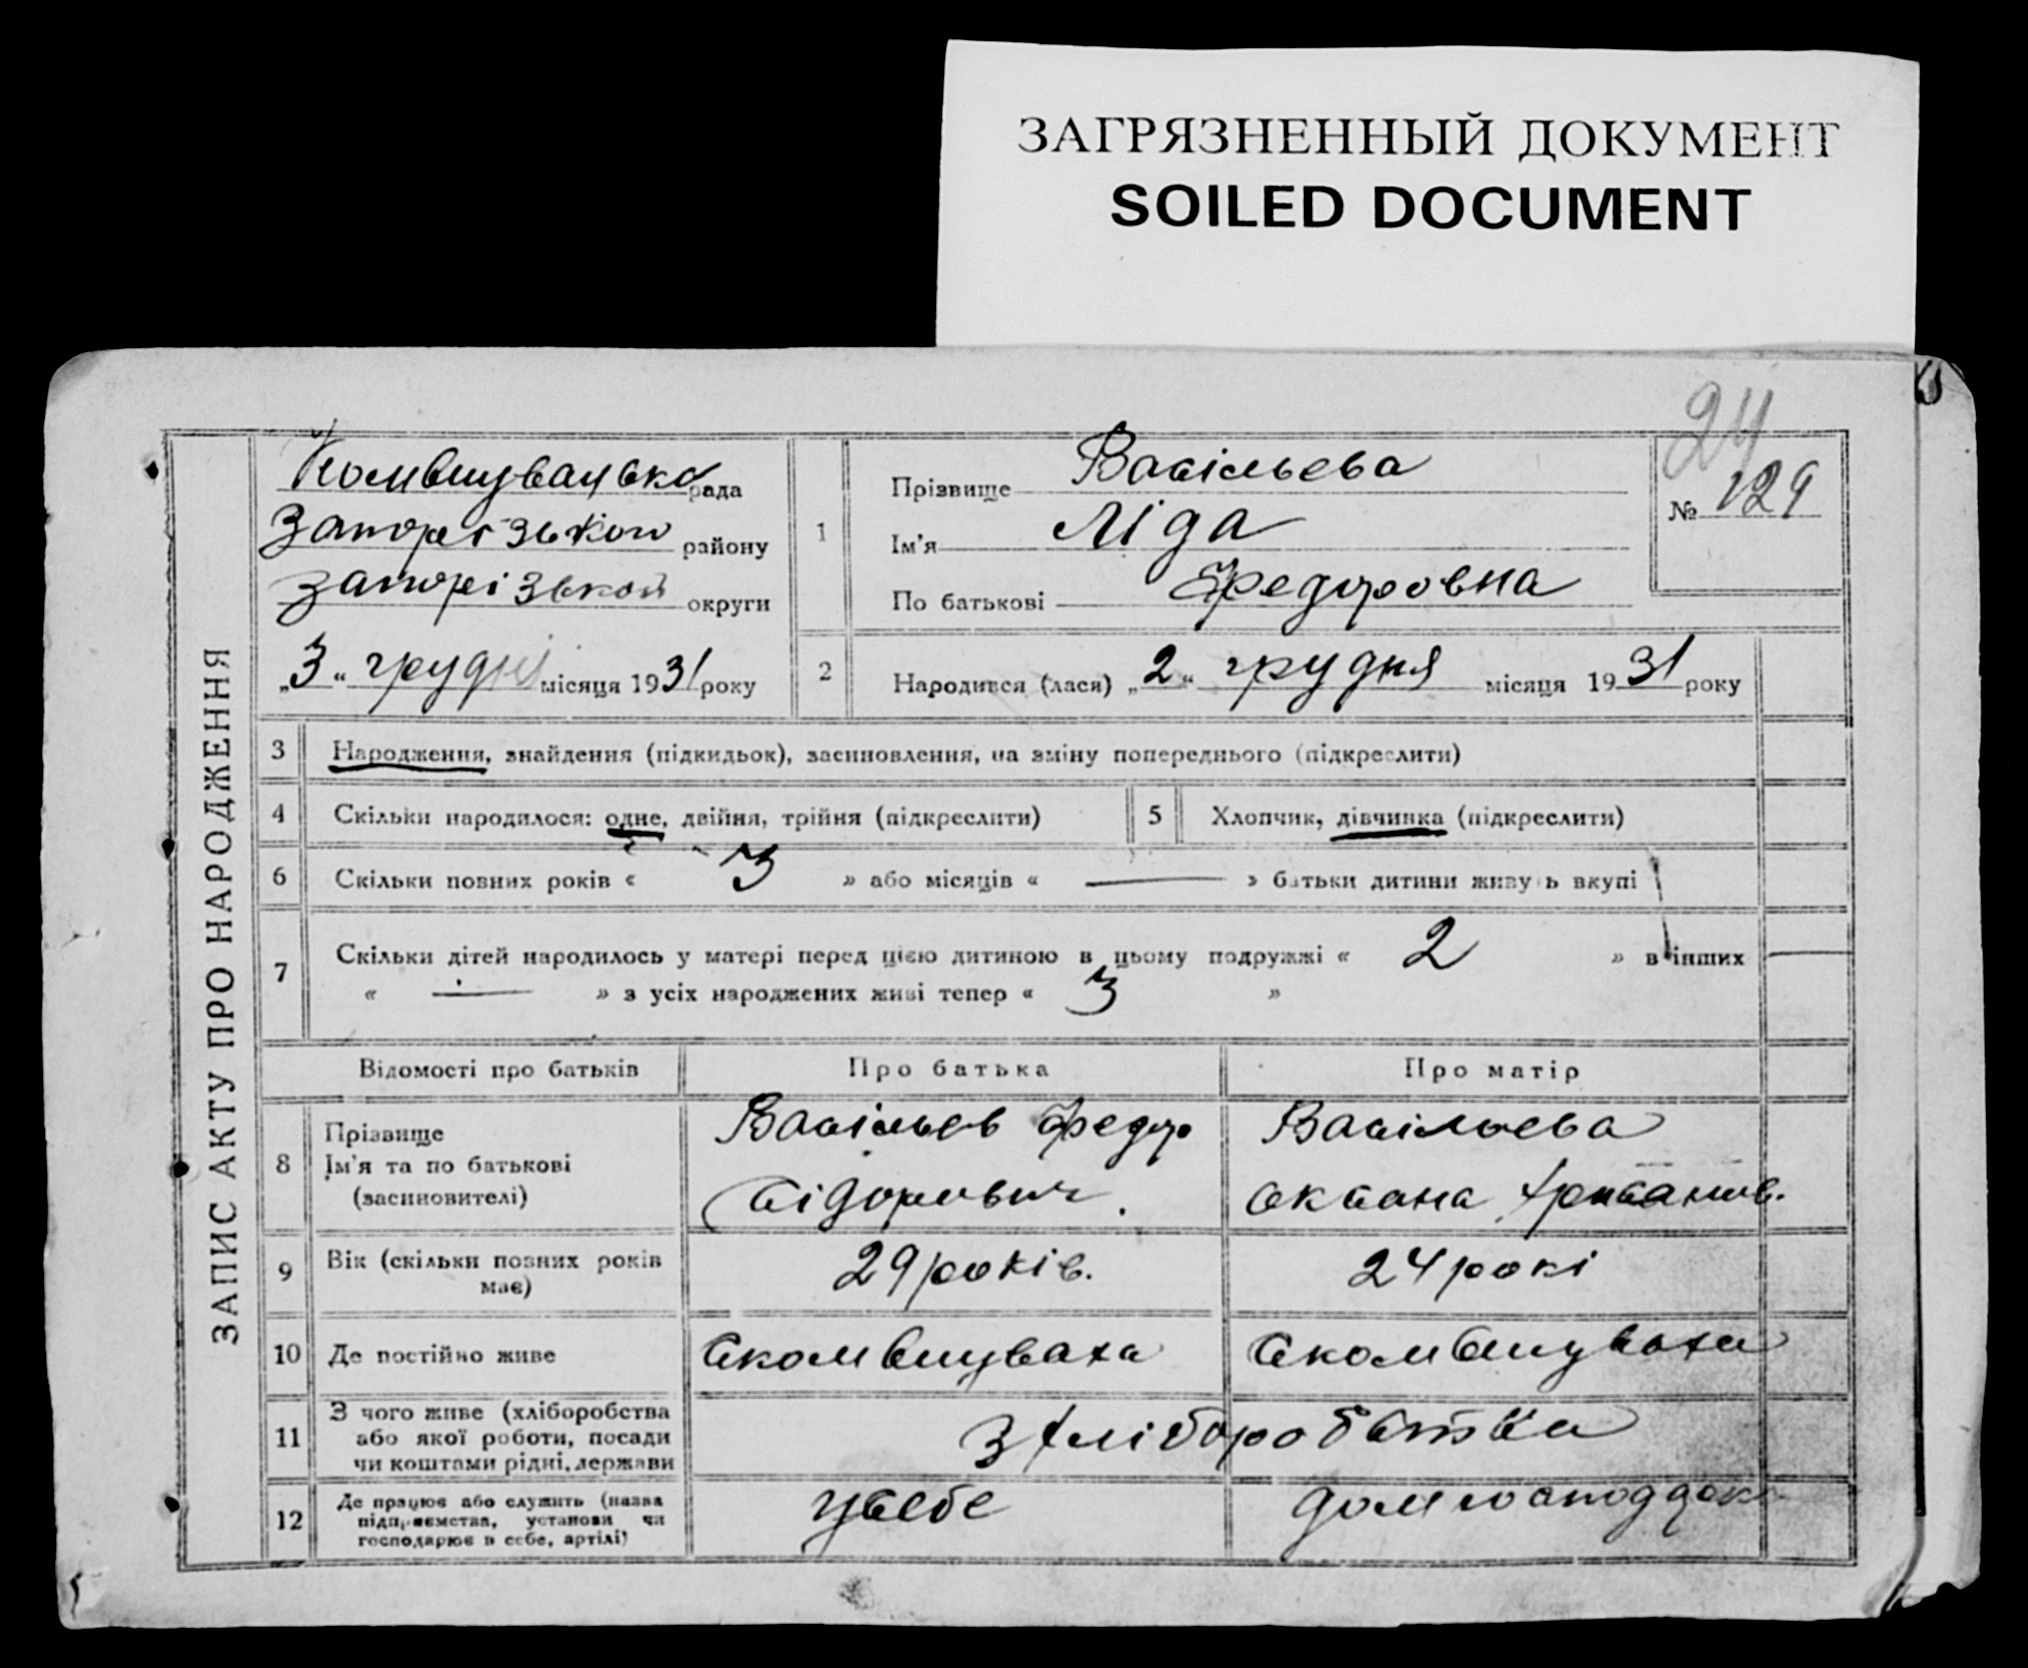 ЗАГРЯЗНЕННЫЙ ДОКУМЕНТ
SOILED DOCUMENT
24
ЗАПИС АКТУ ПРО НАРОДЖЕННЯ
Комишувасько рада
Запорізької району
Запорізької округи
„3“ грудня місяця 1931 року
1
Прізвище Васільєва
Ім'я Ліда
По батькові Федоровна
№ 129
2 Народився (лася) „2“ грудня місяця 1931 року
3 Народження, знайдення (підкидьок), засиновлення, на зміну попереднього (підкреслити)
4 Скільки народилося: одне, двійня, трійня (підкреслити) 5 Хлопчик, дівчинка (підкреслити)
6 Скільки повних років « 3 » або місяців « — » батьки дитини живуть вкупі
7 Скільки дітей народилось у матері перед цією дитиною в цьому подружжі « 2 » в інших
« — » з усіх народжених живі тепер « 3 »
Відомості про батьків Про батька Про матір
8 Прізвище
Ім'я та по батькові
(засиновителі)
Васільєв Федор
Сідорович.
Васільєва
Оксана
9 Вік (скільки повних років
має)
29 років.
24 рокі
10 Де постійно живе
с Комишуваха
с Комишуваха
11 З чого живе (хліборобства
або якої роботи, посади
чи коштами рідні, держави
З хліборобства
12 Де працює або служить (назва
підприємства, установи чи
господарює в себе, артілі)
У себе